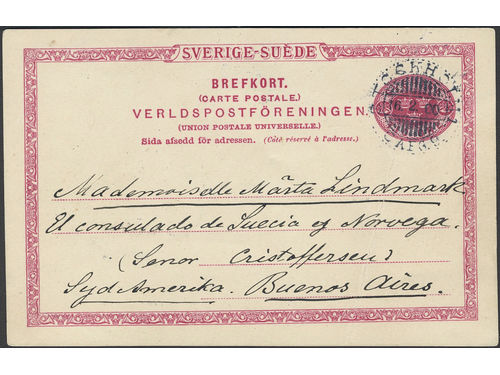 SVERIGE-SUÈDE
BREFKORT.
(CARTE POSTALE.)
VERLDSPOSTFÖRENINGEN.
(UNION POSTALE UNIVERSELLE.)
Sida afsedd för adressen. (Côté réservé à l'adresse.)
Mademoiselle Märta Lindmark
El consulado de Suecia y Norvega.
(Senor Cristoffersen)
Syd Amerika. Buenos Aires.